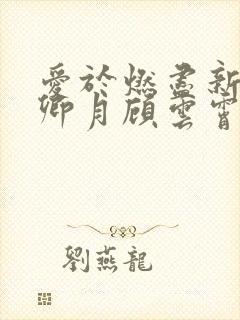 愛於燃盡新
卿月顧雲霄
劉燕龍